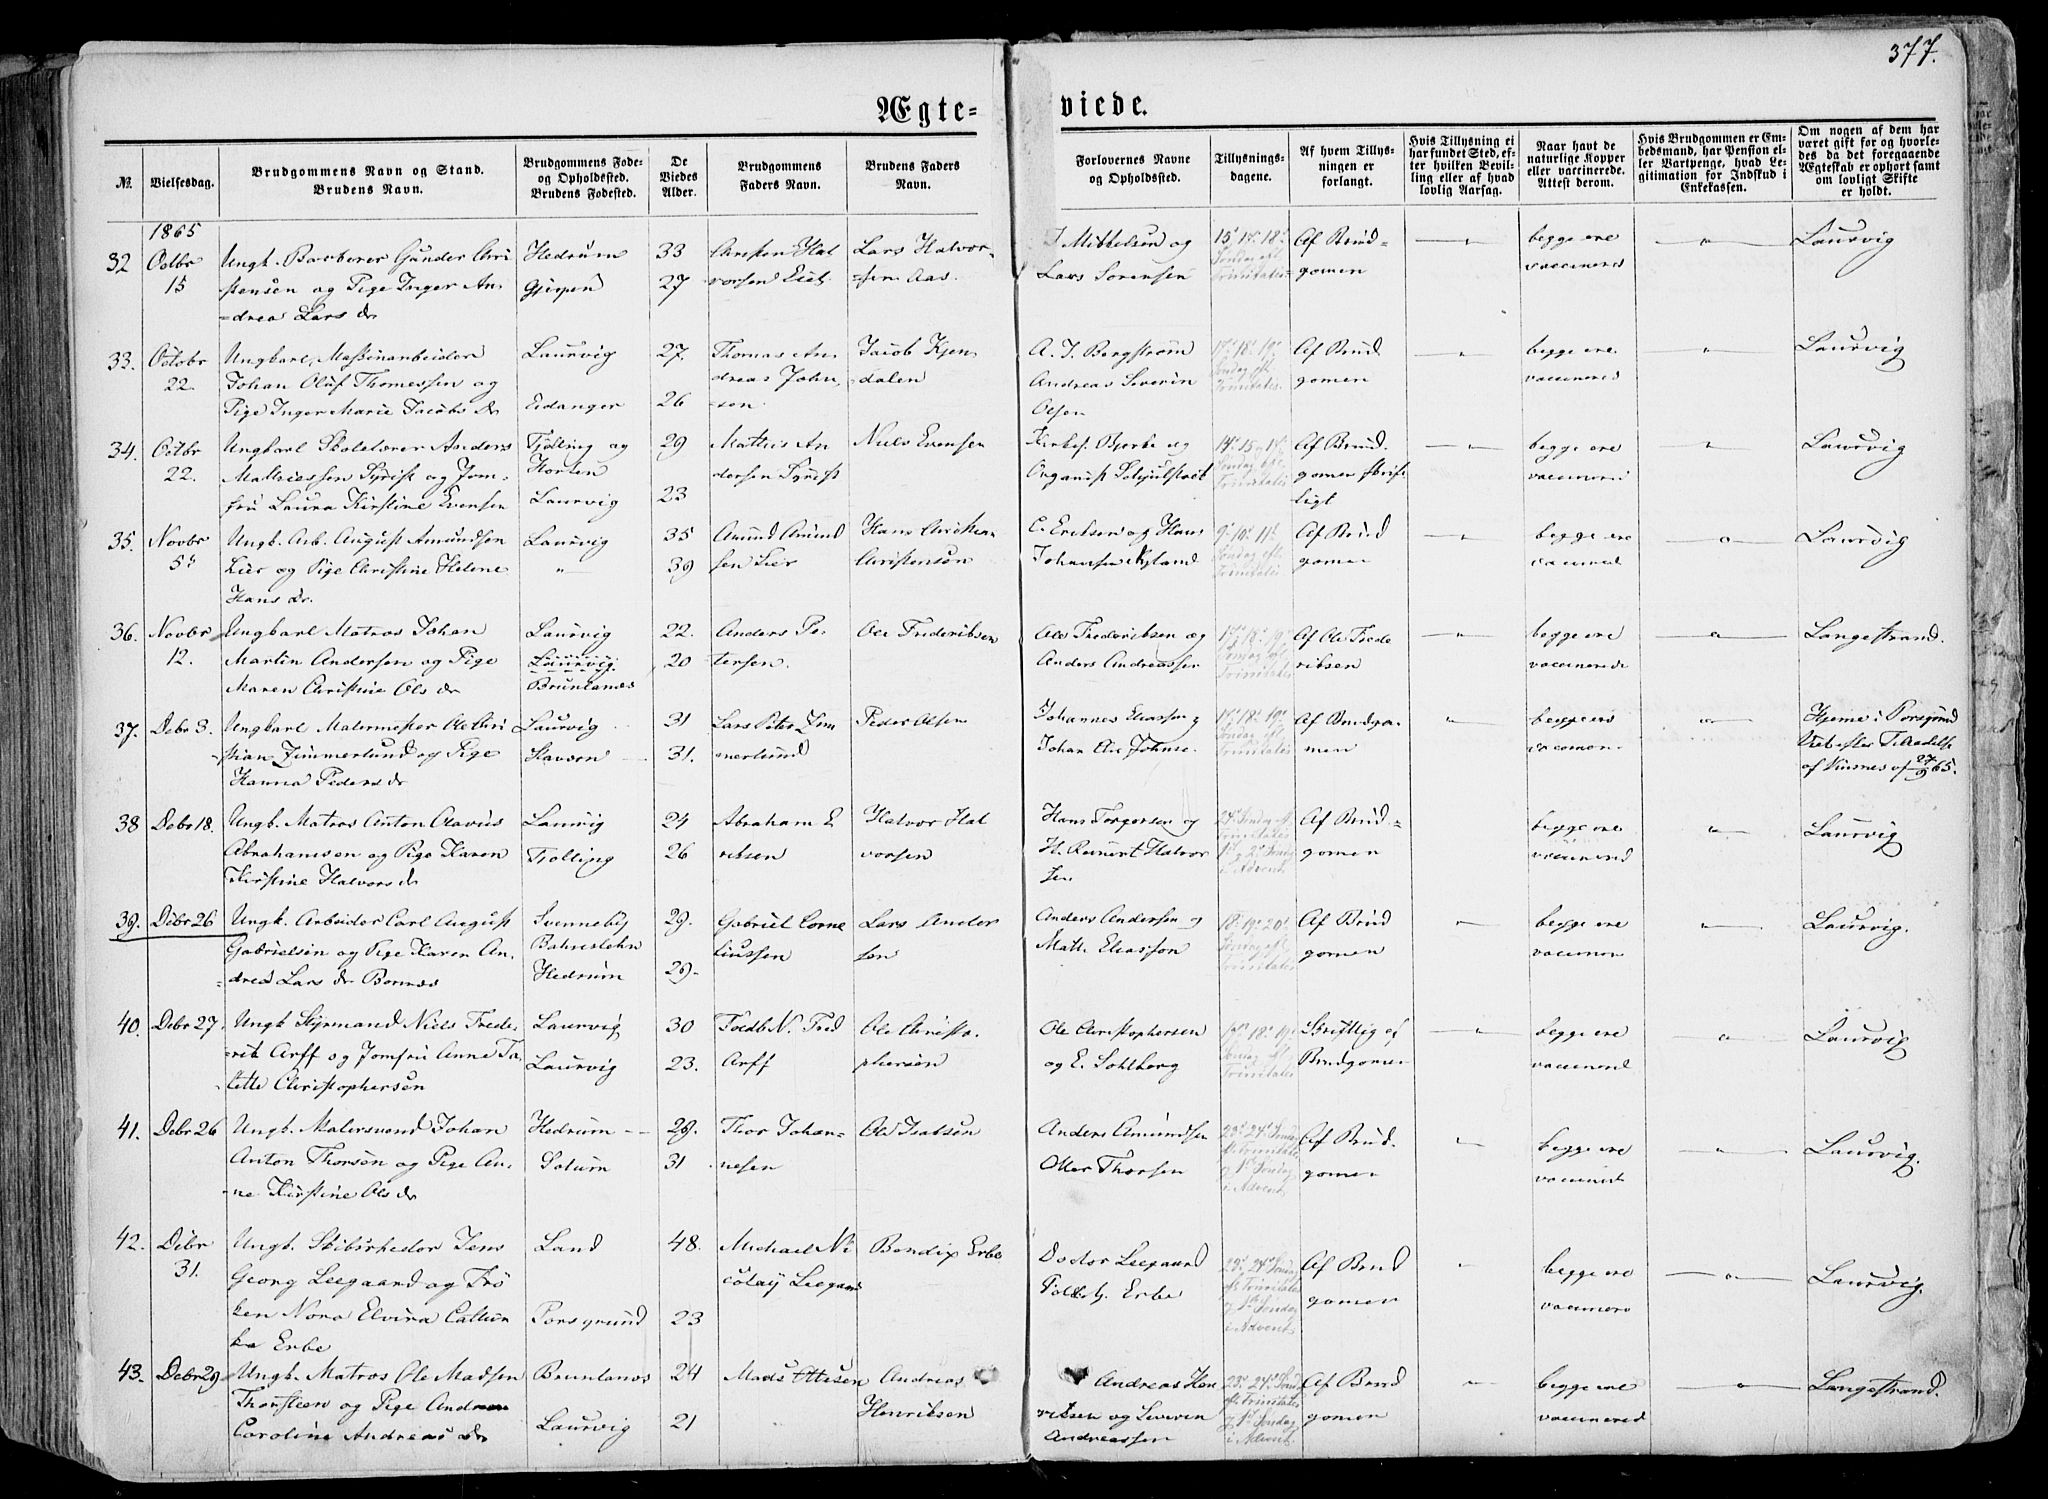 377.
Ægte-
viede.
№.
Vielsesdag.
Brudgommens Navn og Stand.
Brudens Navn.
Brudgommens Føde-
og Opholdssted.
Brudens Fødested.
De
Viedes
Alder.
Brudgommens
Faders Navn.
Brudens Faders
Navn.
Forlovernes Navne
og Opholdssted.
Tillysnings-
dagene.
Af hvem Tillys-
ningen er
forlangt.
Hvis Tillysning ei
har fundet Sted, ef-
ter hvilken Bevil-
ling eller af hvad
lovlig Aarsag.
Naar havt de
naturlige Kopper
eller vaccinerede.
Attest derom.
Hvis Brudgommen er Em-
bedsmand, har Pension el-
ler Vartpenge, hvad Le-
gitimation for Indskud i
Enkekassen.
Om nogen af dem har
været gift før og hvorle-
des da det foregaaende
Ægteskab er ophørt samt
om lovligt Skifte
er holdt.
1865
32 Octbr
15
Ungk. Barberer Gunder Chri
stensen og Pige Inger An-
=drea Lars dr
Hedrum
Gjerpen
33
27
Christen Hal
vorsen
Lars Halvor-
=sen Aas.
J Mikkelsen og
Lars Sorensen
15' 17' 18'
Søndag eft
Trinitatis
Af Brud=
gomen
begge ere
vaccineret
Laurvig
33. Octobr
22.
Ungkarl, Maskinarbeider
Johan Oluf Thomessen og
Pige Inger Marie Jacobs dr
Laurvig
Eidanger
27.
26
Thomas An
dreas John
=sen.
Jacob Kjen
dalen
A. J. Bergstrøm
Andreas Severin
Olsen
17' 18' 19'
Søndag eft
Trinitatis
Af Brud
gomen
begge ere
vaccinered
Laurvig
34. Octbr
22.
Ungkarl Skolelærer Anders
Mathiessen Syrist og Jom-
fru Laura Kirstine Evensen
Tjølling og
Horten
Laurvig
29
23
Mathis An
dersen Syrist
Niels Evensen
Kirkes. Bjerke og
Organist
14' 15' 17'
Søndag eft
Trinitatis
Af Brud
gomen skrift
ligt
begge ere
vaccinered
Laurvig
35. Novbr
5'
Ungk. Arb. August Amundsen
Lier og Pige Christine Helene
Hans dr.
Laurvig
"
35
39
Amund Amund
sen Lier
Hans Christian
Christensen
C. Eriksen og Hans
Johansen
9' 10' 11'
Søndag eft
Trinitatis
Af Brud
gomen
begge ere
vaccined
Laurvig
36. Novbr
12.
Ungkarl Matros Johan
Martin Andersen og Pige
Maren Christine Ols dr
Laurvig
Laurvig
Brunlanæs
22.
20
Anders Pe-
tersen.
Ole Frederiksen
Ole Frederiksen og
Anders Andreassen
17' 18' 19'
Søndag eft
Trinitatis
Af Ole Frede
riksen
begge ere
vaccinerede
Langestrand.
37. Debr 3.
Ungkarl Malermester Ole Chri
stian Zimmerlund og Pige
Hanna Peders dr
Laurvig
Stavern
31
31.
Lars Peter Zim
merlund
Peder Olsen
Johannes Eliassen og
Johan
17' 18' 19'
Søndag eft
Trinitatis
Af Brudgo-
men
begge ere
vaccinere
Hjeme i Porsgrund
Viet efter Tilladelse
af 27/9 65.
38 Debr 18.
Ungk. Matros Anton Olavus
Abrahamsen og Pige Karen
Kirstine Halvors dr
Laurvig
Tjolling
24
26
Abraham E
riksen
Halvor Hal
vorsen
Hans Torgersen og
H. Reinert Halvor
sen
24' Søndag eft
Trinitatis
1' og 2' Sønd
i Advent
Af Brud=
gomen
begge ere
vaccinered
Laurvig
39. Debr 26
Ungk. Arbeider Carl August
Gabrielsen og Pige Karen An-
=drea Lars dr
Svenneby
Bahuslehn
Hedrum
29.
29.
Gabriel Corne
liussen
Lars Ander
sen
Anders Andersen og
Math. Eliassen
18' 19' 20'
Søndag eft
Trinitatis
Af Brud
gomen
begge ere
vaccinere
Laurvig.
40. Debr 27
Ungk Styrmand Niels Frede-
=rik Arff og Jomfru Anne Ta-
lette Christophersen
Laurvig
Laurvig
30
23.
Toldb N. Fred
Arff
Ole Christo-
phersen
Ole Christophersen
og E. Sohlberg
17' 18' 19'
Søndag eft
Trinitatis
Skriftlig af
Brudgomen
begge ere
vaccinered
Laurvig
41. Debr 26
Ungk. Malersvend Johan
Anton Thorsen og Pige An-
=ne Kirstine Ols dr
Hedrum
Solum
29.
31
Thor Johan-
nesen
Ole Isaksen
Anders Amundsen
Otter Thorsen
23' 24' Sønd
eft Trinitatis
og 1' Søndag
i Advent
Af Brud
gomen
begge ere
vaccineret
Laurvig.
42. Debr
31.
Ungk. Skibsrheder Jens
Georg Leegaard og Frø
ken Nora Elvira Cathin
ka Erbe
Land
Porsgrund
48.
23
Michael Ni
colay Leegaard
Bendix Erbe
Doctor Leegaard
Erbe
23' 24' Søndag
eft Trinitatis
og 1' Søndag
i Advent
Af Brud
gomen
begge ere
vaccinere
Laurvig.
43. Debr 29
Ungk. Matros Ole Madsen
Thorsteen og Pige Andrea
Caroline Andreas dr
Brunlanæs
Laurvig
24
21
Mads Ottesen
Andreas
Henriksen
Andreas Hen
riksen og Severin
Andreassen
23' 24' Sønd
eft Trinitatis
og 1' Søndag
i Advent
Af Brud
gomen
begge ere
vaccinered
Langestrand.